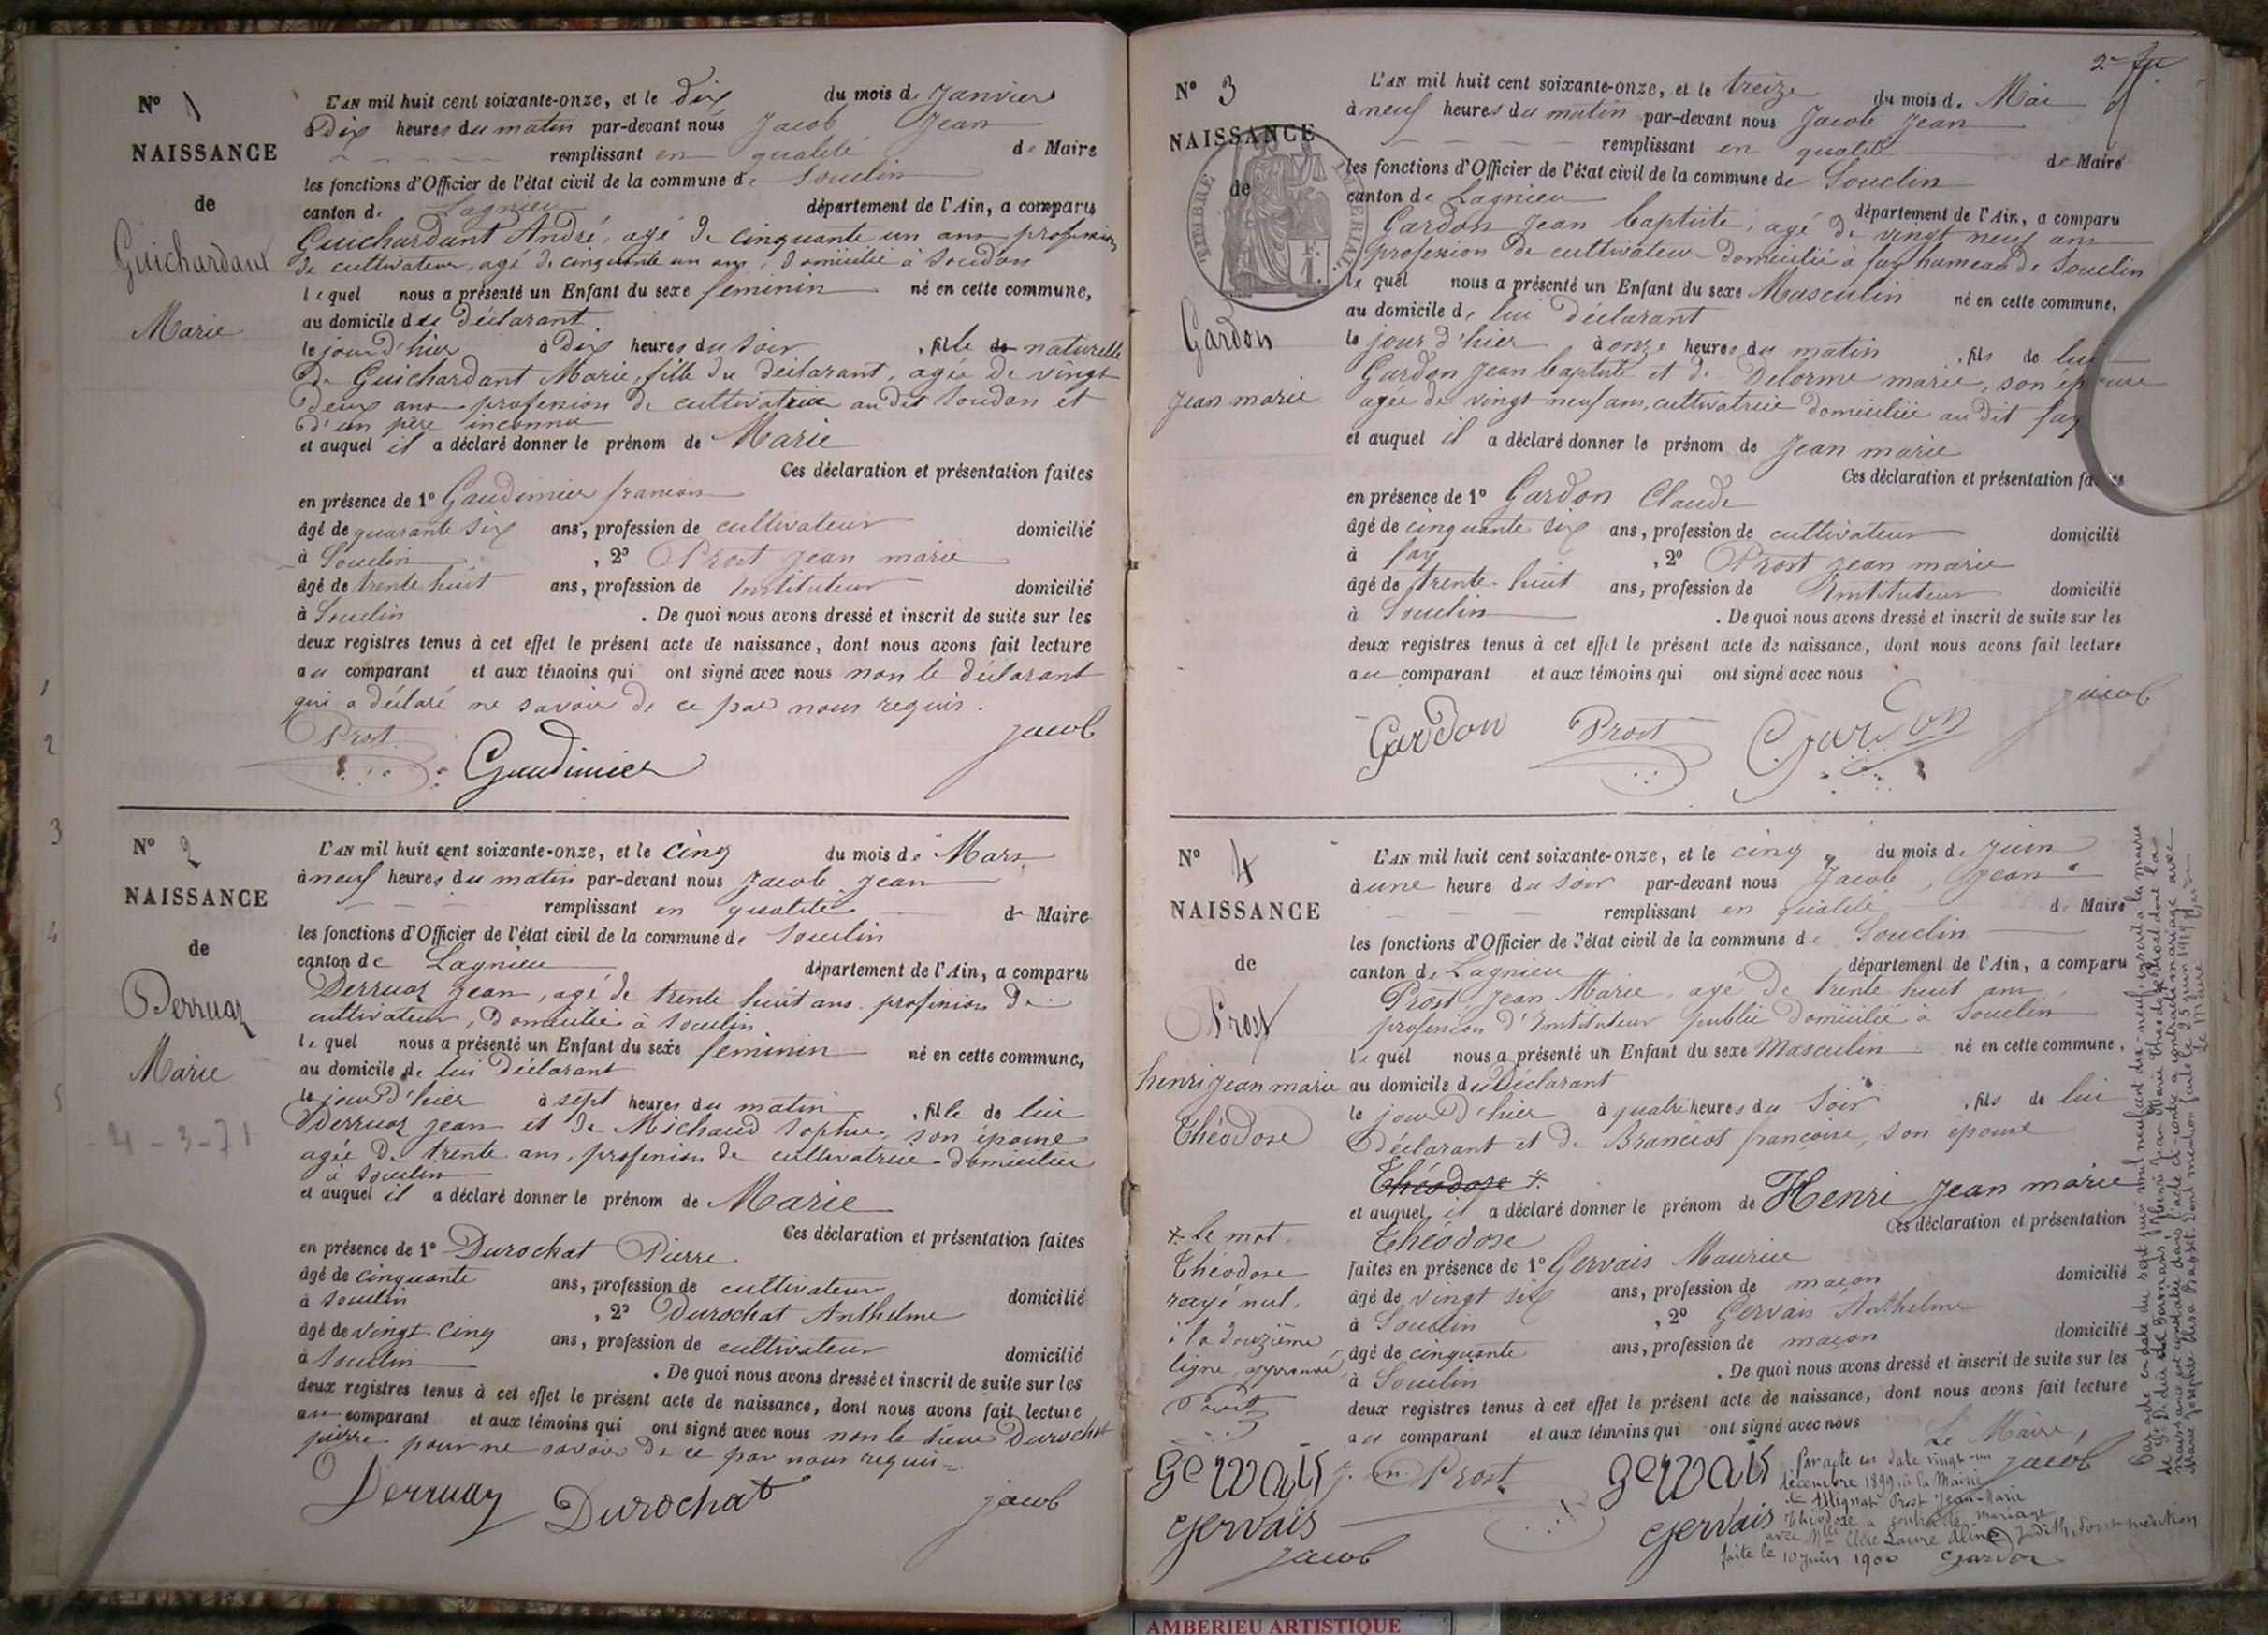 N° 1
NAISSANCE
de
Guichardant
Marie
L'AN mil huit cent soixante-onze, et le dix du mois de Janvier
à Dix heures du matin par-devant nous Jacob Jean
remplissant en qualité de Maire
les fonctions d'Officier de l'état civil de la commune de Souclin
canton de Lagnieu département de l'Ain, a comparu
Guichardant André, agé de cinquante un ans profession
de cultivateur, agé de cinquante un ans, domicilié à Soudon
lequel nous a présenté un Enfant du sexe feminin né en cette commune,
au domicile du déclarant
le jour d'hier à Dix heures du soir, fille de naturelle
De Guichardant Marie, fille du déclarant, agée de vingt
deux ans profession de cultivatrice au dit Soudon et
d'un père inconnu
et auquel il a déclaré donner le prénom de Marie
Ces déclaration et présentation faites
en présence de 1° Gaudimier francois
âgé de quarante six ans, profession de cultivateur domicilié
à Souclin, 2° Prost jean marie
âgé de trente huit ans, profession de Instituteur domicilié
à Souclin. De quoi nous avons dressé et inscrit de suite sur les
deux registres tenus à cet effet le présent acte de naissance, dont nous avons fait lecture
au comparant et aux témoins qui ont signé avec nous non le déclarant
qui a déclaré ne savoir de ce par nous requis.
Prost Gaudimier jacob
1
2
3
4
5
N° 2
NAISSANCE
de
Derruaz
Marie
4-3-71
L'AN mil huit cent soixante-onze, et le cinq du mois de Mars
à neuf heures du matin par-devant nous Jacob Jean
remplissant en qualité de Maire
les fonctions d'Officier de l'état civil de la commune de Souclin
canton de Lagnieu département de l'Ain, a comparu
Derruaz Jean, agé de trente huit ans profession de
cultivateur, Domicilié à Souclin
lequel nous a présenté un Enfant du sexe feminin né en cette commune,
au domicile de lui Déclarant
le jour d'hier à sept heures du matin, fille de lui
Derruaz jean et de Michaud Sophie, son épouse
agée de trente ans, profession de cultivatrice domiciliée
à Souclin
et auquel il a déclaré donner le prénom de Marie
Ces déclaration et présentation faites
en présence de 1° Durochat Pierre
âgé de cinquante ans, profession de cultivateur domicilié
à Souclin, 2° Durochat Anthelme
âgé de vingt cinq ans, profession de cultivateur domicilié
à Souclin. De quoi nous avons dressé et inscrit de suite sur les
deux registres tenus à cet effet le présent acte de naissance, dont nous avons fait lecture
au comparant et aux témoins qui ont signé avec nous non le sieur Durochat
pierre pour ne savoir de ce par nous requis
Derruaz Durochat jacob
N° 3
NAISSANCE
de
TIMBRE IMPÉRIAL
Gardon
Jean marie
L'AN mil huit cent soixante-onze, et le treize du mois de Mai
à neuf heures du matin par-devant nous Jacob Jean
remplissant en qualité de Maire
les fonctions d'Officier de l'état civil de la commune de Souclin
canton de Lagnieu département de l'Ain, a comparu
Gardon Jean baptiste, agé de vingt neuf ans
profession de cultivateur domicilié à fay hameau de Souclin
lequel nous a présenté un Enfant du sexe Masculin né en cette commune,
au domicile de lui déclarant
le jour d'hier à onze heures du matin, fils de lui
Gardon Jean baptiste et de Delorme marie, son épouse
agée de vingt neuf ans, cultivatrice domiciliée au dit fay
et auquel il a déclaré donner le prénom de Jean marie
Ces déclaration et présentation faites
en présence de 1° Gardon Claude
âgé de cinquante six ans, profession de cultivateur domicilié
à fay, 2° Prost jean marie
âgé de trente-huit ans, profession de Instituteur domicilié
à Souclin. De quoi nous avons dressé et inscrit de suite sur les
deux registres tenus à cet effet le présent acte de naissance, dont nous avons fait lecture
au comparant et aux témoins qui ont signé avec nous
Gardon Prost Gardon jacob
N° 4
NAISSANCE
de
Prost
henri jean marie
Théodose
* le mot
Théodose
rayé nul,
à la douzième
ligne, approuvé
Prost
L'AN mil huit cent soixante-onze, et le cinq du mois de Juin
à une heure du soir par-devant nous Jacob, Jean
remplissant en qualité de Maire
les fonctions d'Officier de l'état civil de la commune de Souclin
canton de Lagnieu département de l'Ain, a comparu
Prost, Jean Marie, agé de trente huit ans,
profession d'Instituteur public domicilié à Souclin
lequel nous a présenté un Enfant du sexe Masculin né en cette commune,
au domicile du Déclarant
le jour d'hier à quatre heures du Soir, fils de lui
Déclarant et de Branciot françoise, son épouse
Théodose *
et auquel il a déclaré donner le prénom de Henri Jean marie
Ces déclaration et présentation
Théodose
faites en présence de 1° Gervais Maurice
âgé de vingt six ans, profession de maçon domicilié
à Souclin, 2° Gervais Anthelme
âgé de cinquante ans, profession de maçon domicilié
à Souclin. De quoi nous avons dressé et inscrit de suite sur les
deux registres tenus à cet effet le présent acte de naissance, dont nous avons fait lecture
au comparant et aux témoins qui ont signé avec nous
Le Maire,
gervais j. m. Prost gervais jacob
gervais gervais
jacob
Par acte en date vingt-un
décembre 1899, à la Mairie
de Attignat Prost Jean-Marie
Théodose a contracté mariage
avec Mlle Clerc Laure Aline Judith, dont mention
faite le 10 juin 1900 Gardon
Par acte en date du sept juin mil neuf cent dix-neuf, inscrit à la mairie
de St Didier de Formans, Henri Jean Marie Théodose Prost dont la
naissance est constatée dans l'acte ci-contre a contracté mariage avec
Marie Josephte Elisa Basset. Dont mention faite le 25 juin 1919
Le Maire
AMBERIEU ARTISTIQUE